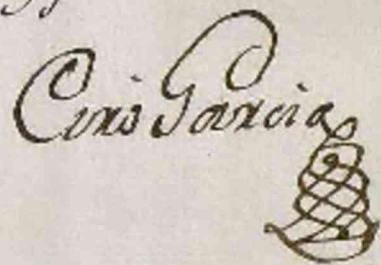 Ciris Garcia